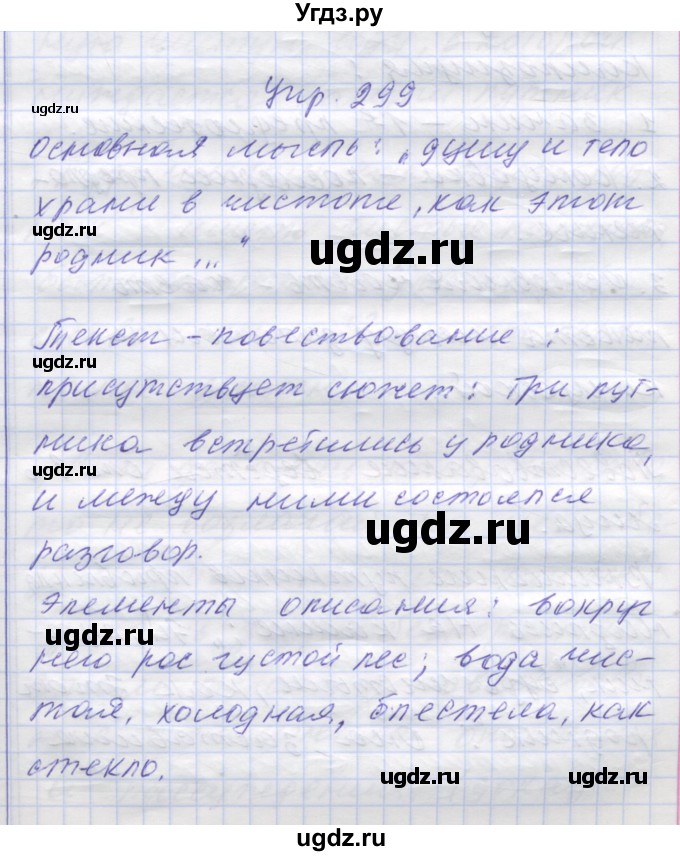 Угдз.ру
Упр. 299
ugdz.ru
Основная мысль: „душу и тело
храни в чистоте, как этот
ugdz.ru
ugdz.ru
родник..."
Текст - повествование:
ugdz.ru
присутствует сюжет: Три пут-
ника встретились у родника,
ugdz.ru
и между ними состоялся
ugdz.ru
разговор.
Элементы описания: вокруг
ugdz.ru
него рос густой лес; вода чис-
тая, холодная, блестела, как
стекло.
ugdz.ru
ugdz.ru
ugdz.ru